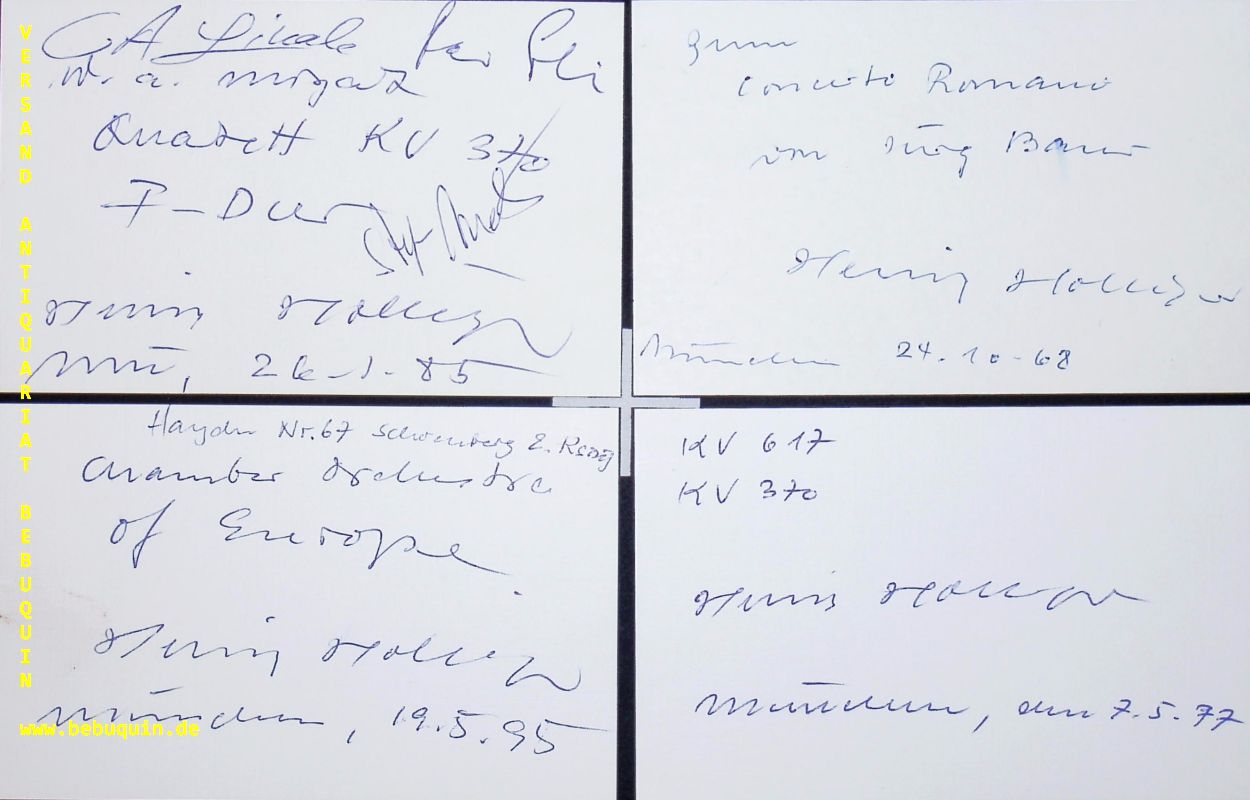 W. A. Mozart
Quartett KV 370
F-Dur
Heinz Holliger
Mü, 26.1.85
zum
Concerto Romano
von Jürg Baur
Heinz Holliger
München 24.10.68
Haydn Nr. 67 Schoenberg
Chamber Orchestra
of Europe
Heinz Holliger
München, 19.5.95
KV 617
KV 370
Heinz Holliger
München, den 7.5.77
VERSAND ANTIQUARIAT BEBUQUIN
www.bebuquin.de